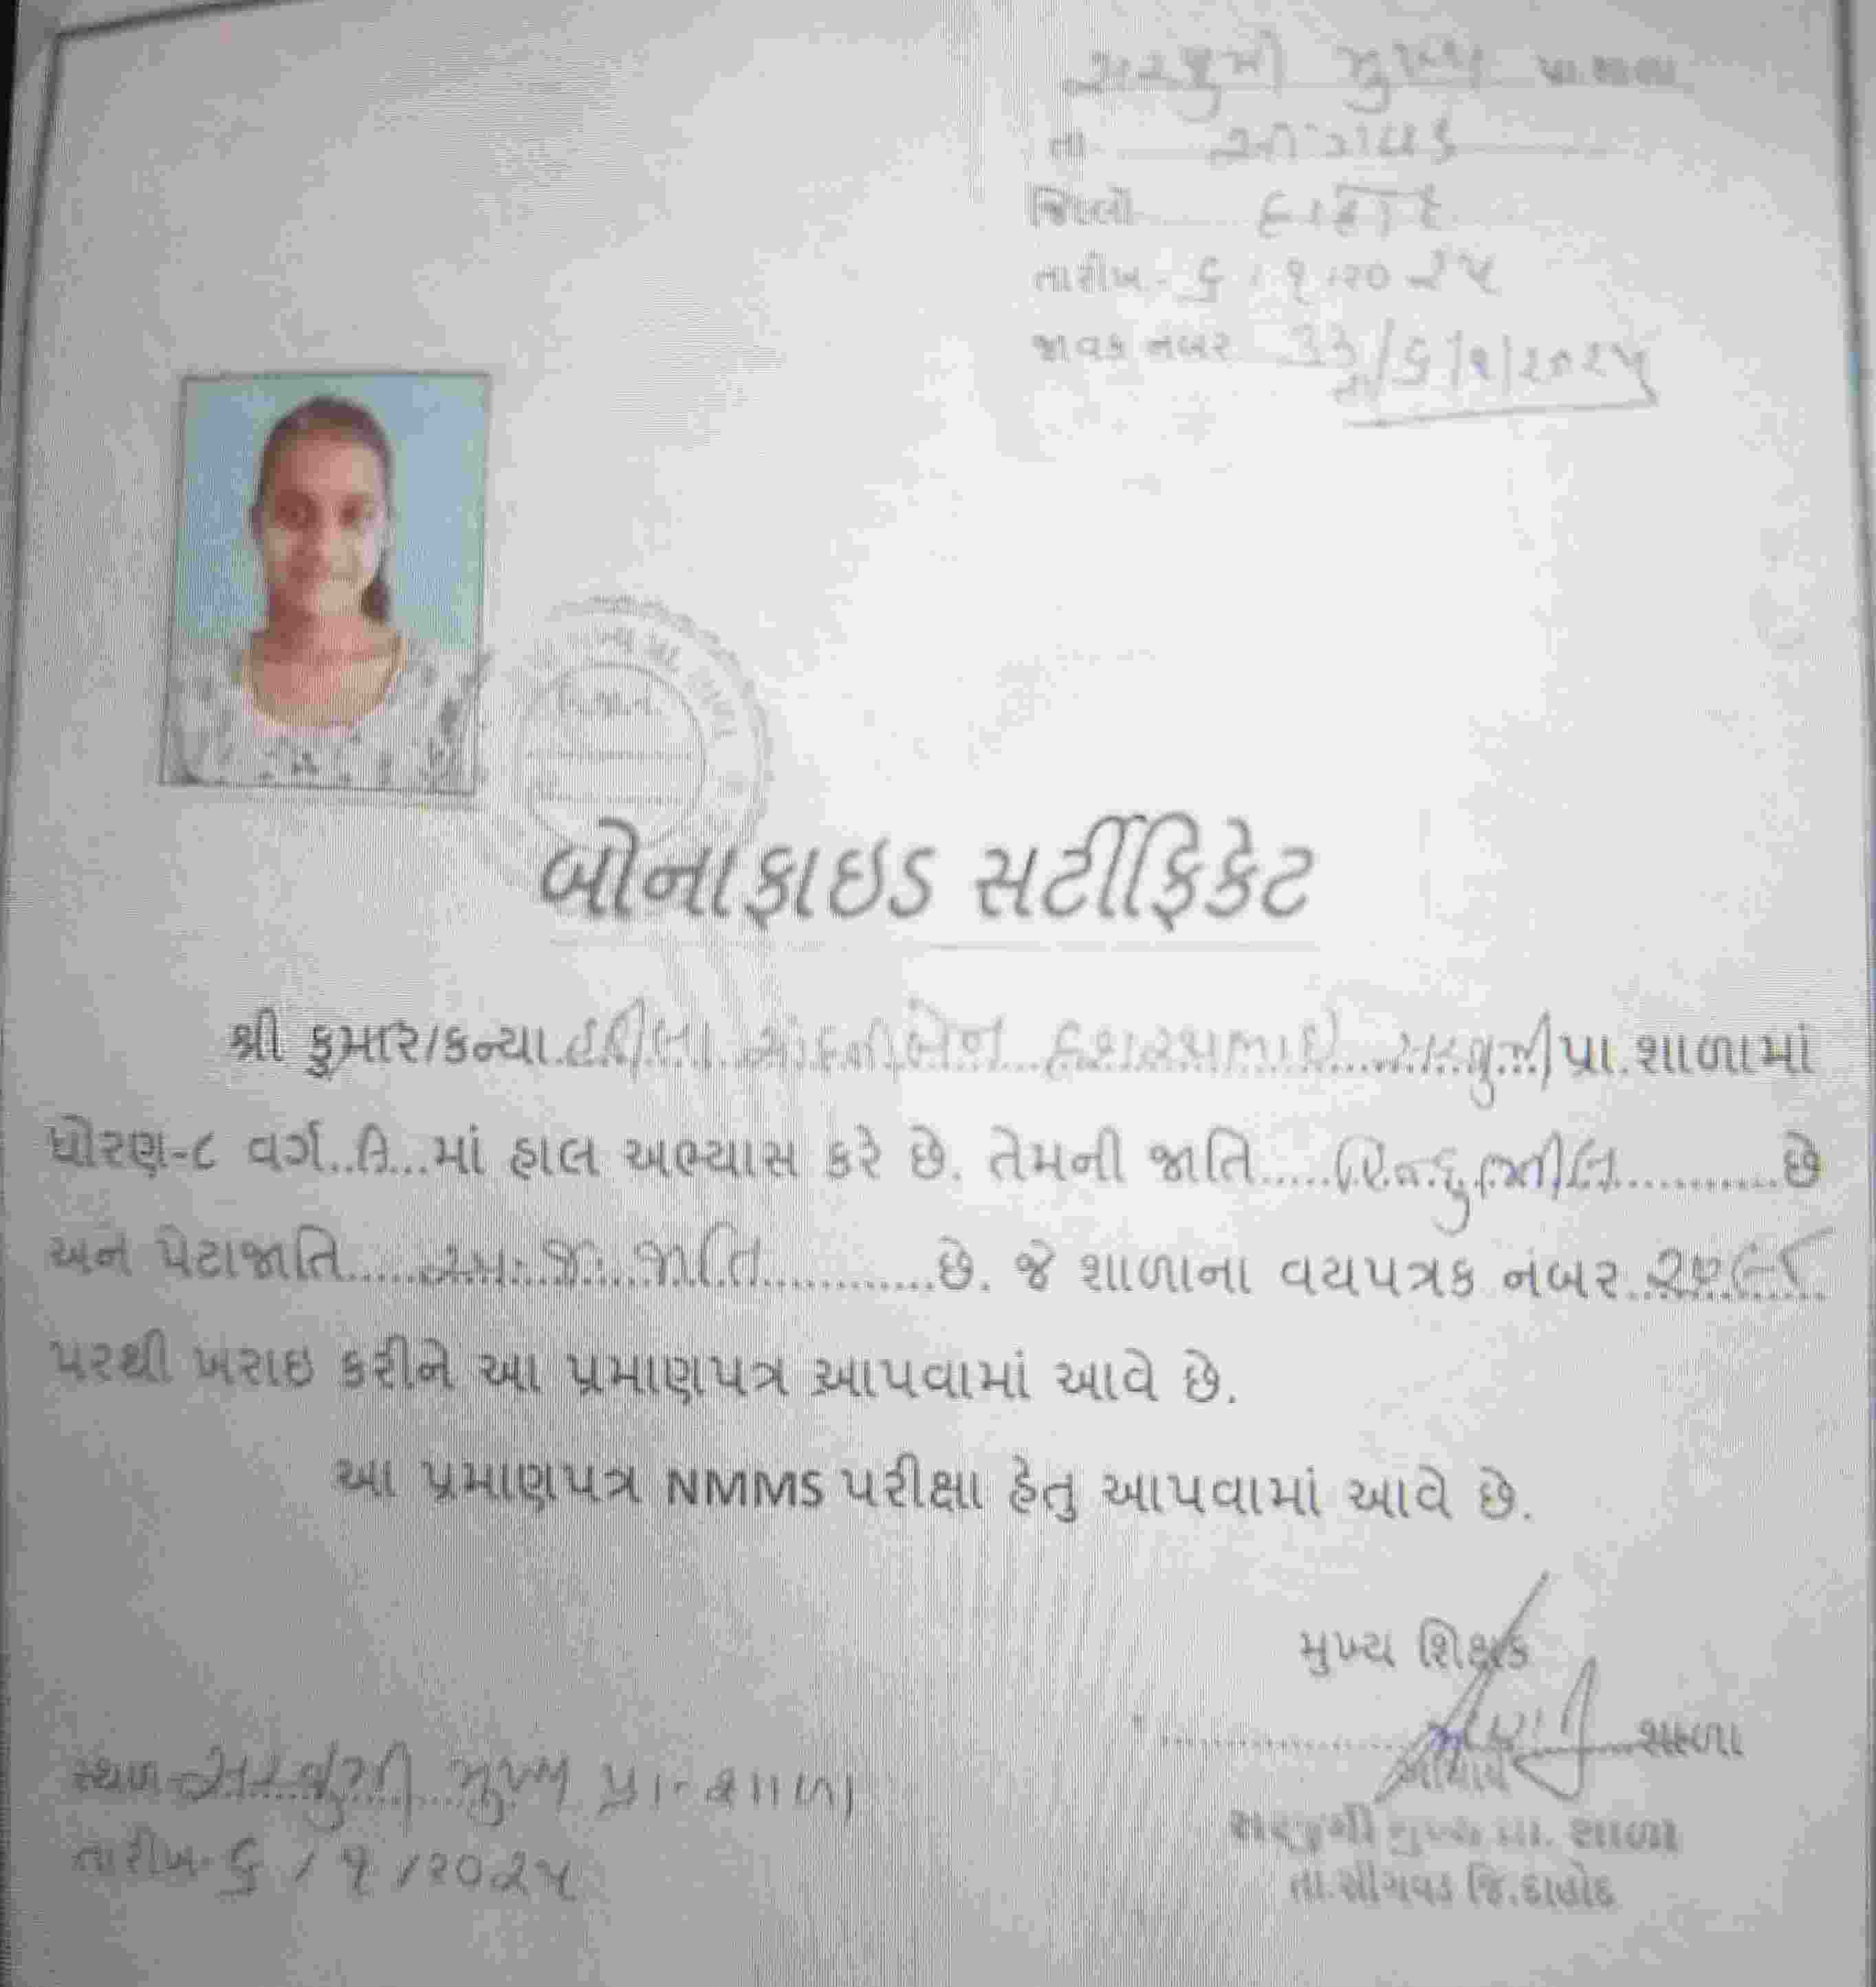 સરજુમી મુખ્ય પ્રા.શાળા
તા. સીંગવડ
જિલ્લો દાહોદ
તારીખ- ૬/૧/૨૦૨૫
જાવક નંબર ૩૩/૬/૧/૨૦૨૫
બોનાફાઇડ સર્ટીફિકેટ
શ્રી કુમાર/કન્યા ચાંદનીબેન દશરથભાઈ સરજુમી પ્રા.શાળામાં
ધોરણ-૮ વર્ગ માં હાલ અભ્યાસ કરે છે. તેમની જાતિ હિન્દુ ભીલ છે
અને પેટાજાતિ અનુ.જ.જાતિ છે. જે શાળાના વયપત્રક નંબર
પરથી ખરાઇ કરીને આ પ્રમાણપત્ર આપવામાં આવે છે.
આ પ્રમાણપત્ર NMMS પરીક્ષા હેતુ આપવામાં આવે છે.
મુખ્ય શિક્ષક
શાળા
આચાર્ય
સ્થળ- સરજુમી મુખ્ય પ્રા. શાળા
સરજુમી મુખ્ય પ્રા. શાળા
તારીખ- ૬/૧/૨૦૨૫
તા.સીંગવડ જિ.દાહોદ